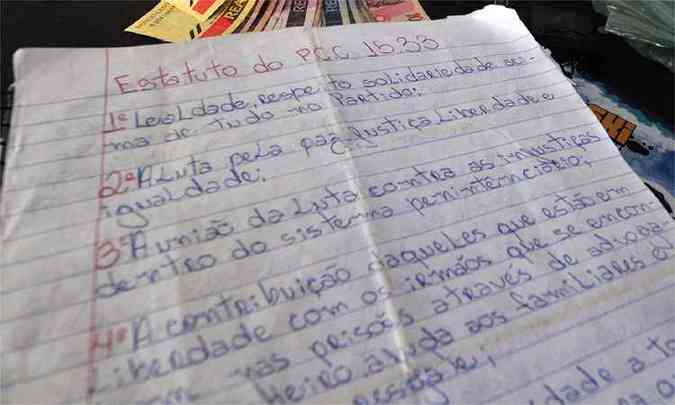 REA
REA
Estatuto do P.C.C 15.33
1º Lealdade, respeito solidariedade aci-
ma de tudo no Partido;
2º A Luta pela paz, Justiça Liberdade e
igualdade;
3º A união da Luta contra as injustiças
dentro do sistema penintenciário;
4º A contribuição daqueles que estão em
Liberdade com os irmãos que se encon
nas prisões através de advoga
heiro, ajuda aos familiares e
resgate;
dade a to